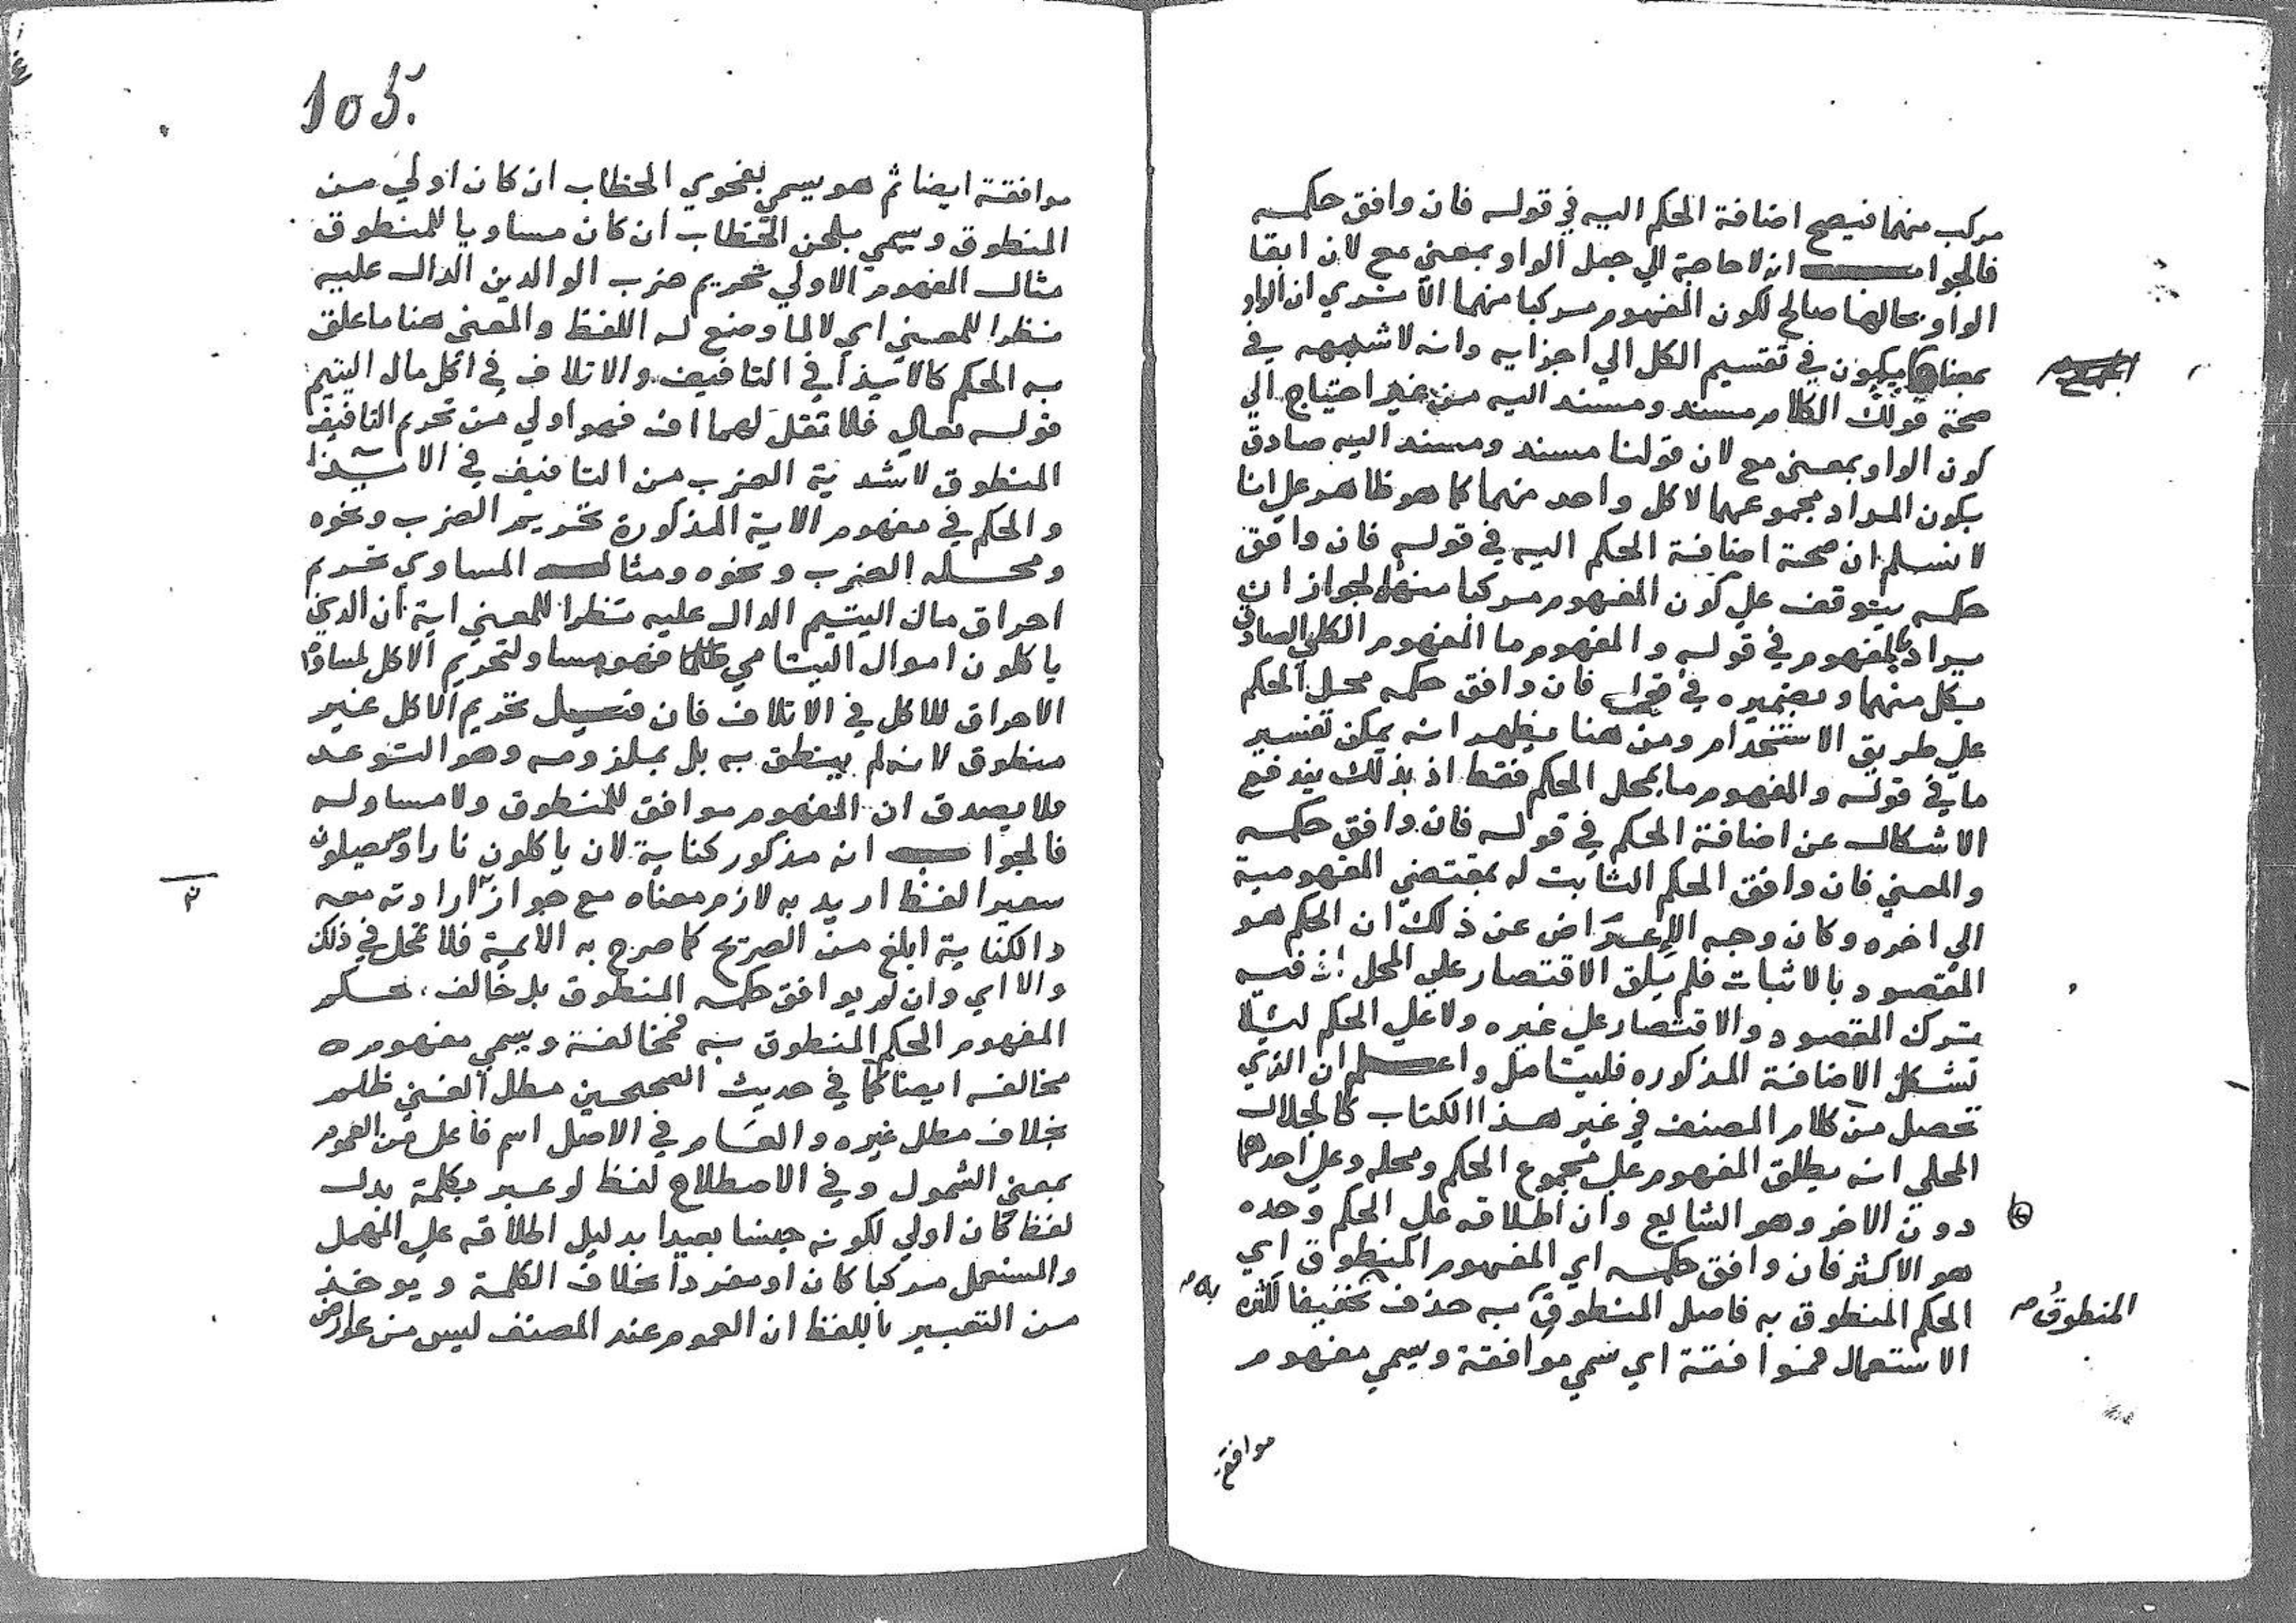 مركب منهما فيصح اضافة الحكم اليه في قوله فان وافق حكمه
فالجواب انه لا حاجة الي جعل الواو بمعني مع لان ابقا
الواو بحالها صالح لكون المفهوم مركبا منهما الا تري ان الواو
بمعناها يكون في تقسيم الكل الي اجزايه وانه لا شبهه في
صحة قولك الكلام مسند ومسند اليه من غير احتياج الي
كون الواو بمعني مع لان قولنا مسند ومسند اليه صادق
بكون المراد مجموعهما لا كل واحد منهما كما هو ظاهر علي انا
لا نسلم ان صحة اضافة الحكم اليه في قوله فان وافق
حكمه يتوقف علي كون المفهوم مركبا منهما لجواز ان
يراد بالمفهوم في قوله والمفهوم ما المفهوم الكلي الصادق
بكل منهما وبضميره في قوله فان وافق حكمه محل الحكم
علي طريق الاستخدام ومن هنا يظهر انه يمكن تفسير
ما في قوله والمفهوم ما بمحل الحكم فقط اذ بذلك يندفع
الاشكال عن اضافة الحكم في قوله فان وافق حكمه
والمعني فان وافق الحكم الثابت له بمقتضي المفهومية
الي اخره وكان وجه الاعتراض عن ذلك ان الحكم هو
المقصود بالاثبات فلم يلق الاقتصار علي المحل اذ فيه
ترك المقصود والاقتصار علي غيره ولا علي الحكم ليلا
تشكل الاضافة المذكوره فليتامل واعلم ان الذي
تحصل من كلام المصنف في غير هذا الكتاب كالجلال
المحلي انه يطلق المفهوم علي مجموع الحكم ومحله وعلي احدهما
دون الاخر وهو الشايع وان اطلاقه علي الحكم وحده
هو الاكثر فان وافق حكمه اي المفهوم المنطوق اي
الحكم المنطوق به فاصل المنطوق به حذف تخفيفا لكثرة
المنطوق
به
الاستعمال فموافقة اي سمي موافقة ويسمي مفهوم
موافقة
105.
موافقة ايضا ثم هو يسمي بفحوي الخطاب ان كان اولي من
المنطوق ويسمي بلحن الخطاب ان كان مساويا للمنطوق
مثال المفهوم الاولي تحريم ضرب الوالدين الدال عليه
نظرا للمعني اي لا لما وضع له اللفظ والمعني هنا ما علق
به الحكم كالايذا في التافيف والاتلاف في اكل مال اليتيم
قوله تعالي فلا تقل لهما اف فهو اولي من تحريم التافيف
المنطوق لاشدية الضرب من التافيف في الايذا
والحكم في مفهوم الاية المذكورة تحريم الضرب ونحوه
ومحله الضرب ونحوه ومثال المساوي تحريم
احراق مال اليتيم الدال عليه نظرا للمعني اية ان الذين
ياكلون اموال اليتامي ظلما فهو مساو لتحريم الاكل لمساواة
الاحراق للاكل في الاتلاف فان قيل تحريم الاكل غير
منطوق لانه لم ينطق به بل بملزومه وهو التوعد
فلا يصدق ان المفهوم موافق للمنطوق ولا مساو له
فالجواب انه مذكور كناية لان ياكلون نارا وسيصلون
سعيرا لفظ اريد به لازم معناه مع جواز ارادته معه
والكناية ابلغ من الصريح كما صرح به الايمة فلا تخل في ذلك
والا اي وان لم يوافق حكمه المنطوق بل خالف حكم
المفهوم الحكم المنطوق به فمخالفة ويسمي مفهومه
مخالفه ايضا كما في حديث الصحيحين مطل الغني ظلم
بخلاف مطل غيره والعام في الاصل اسم فاعل من العموم
بمعني الشمول وفي الاصطلاح لفظ لو عبر بكلمة بدل
لفظ كان اولي لكونه جنسا بعيدا بدليل اطلاقه علي المهمل
والمستعمل مركبا كان او مفردا بخلاف الكلمة ويوخذ
من التعبير باللفظ ان العموم عند المصنف ليس من عوارض